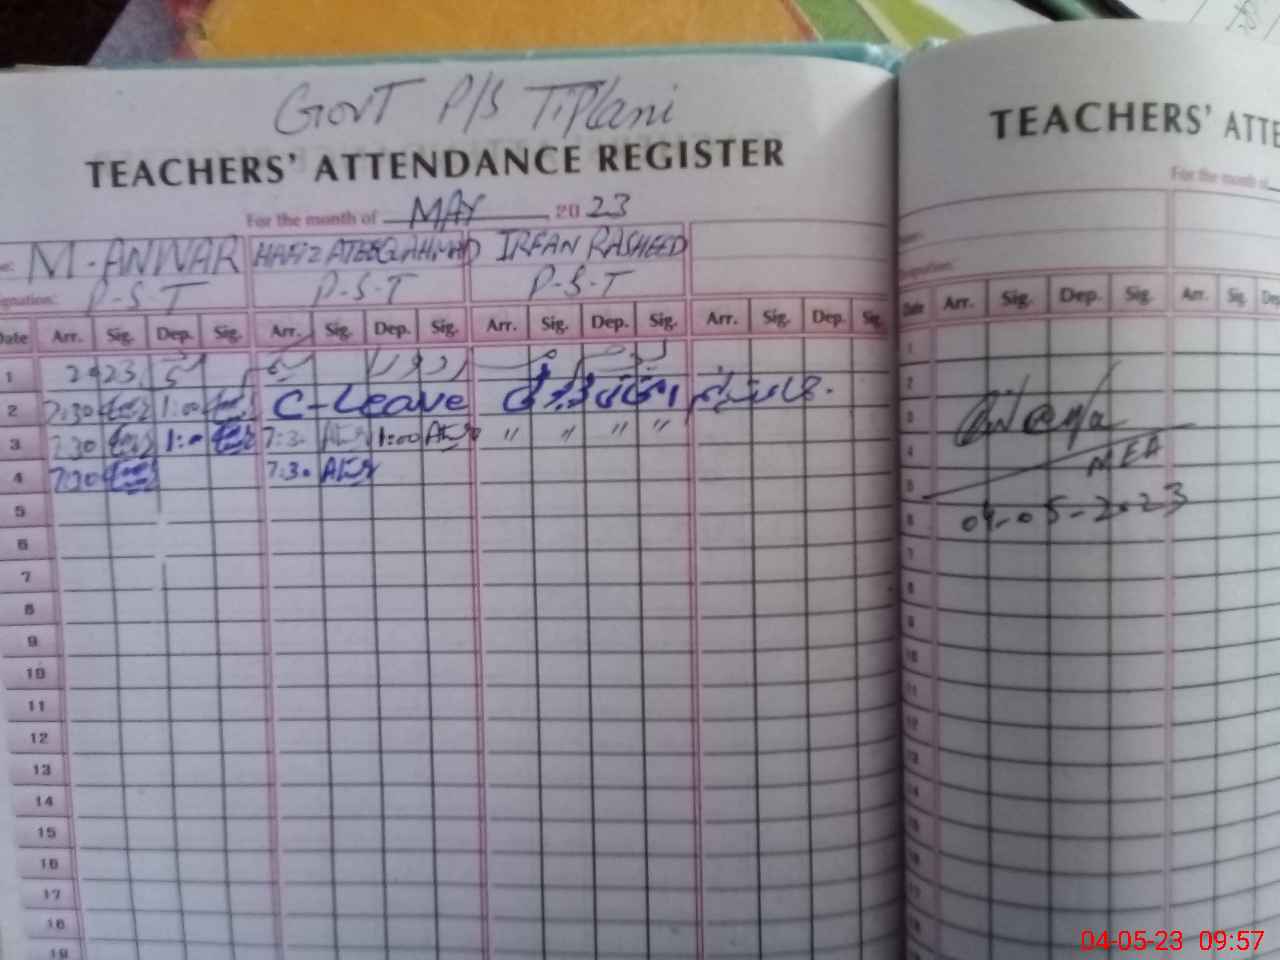 GOVT P/S Tiplani
TEACHERS' ATTENDANCE REGISTER
For the month of MAY 2023
M. ANWAR HAFIZ ATEEQ AHMAD IRFAN RASHEED
P-S-T P-S-T P-S-T
Date Arr. Sig. Dep. Sig. Arr. Sig. Dep. Sig. Arr. Sig. Dep. Sig. Arr. Sig. Dep. Sig.
1
2 7:30 1:00 C-Leave
3 7:30 1:00 7:30 1:00 " " " "
4 7:30 7:30
5
6
7
8
9
10
11
12
13
14
15
16
17
18
19
TEACHERS' ATTE
For the month of
Date Arr. Sig. Dep. Sig. Arr. Sig. De
1
2
3
4
5
6
7
8
9
10
11
12
13
14
15
16
17
18
MEA
04-05-2023
04-05-23 09:57